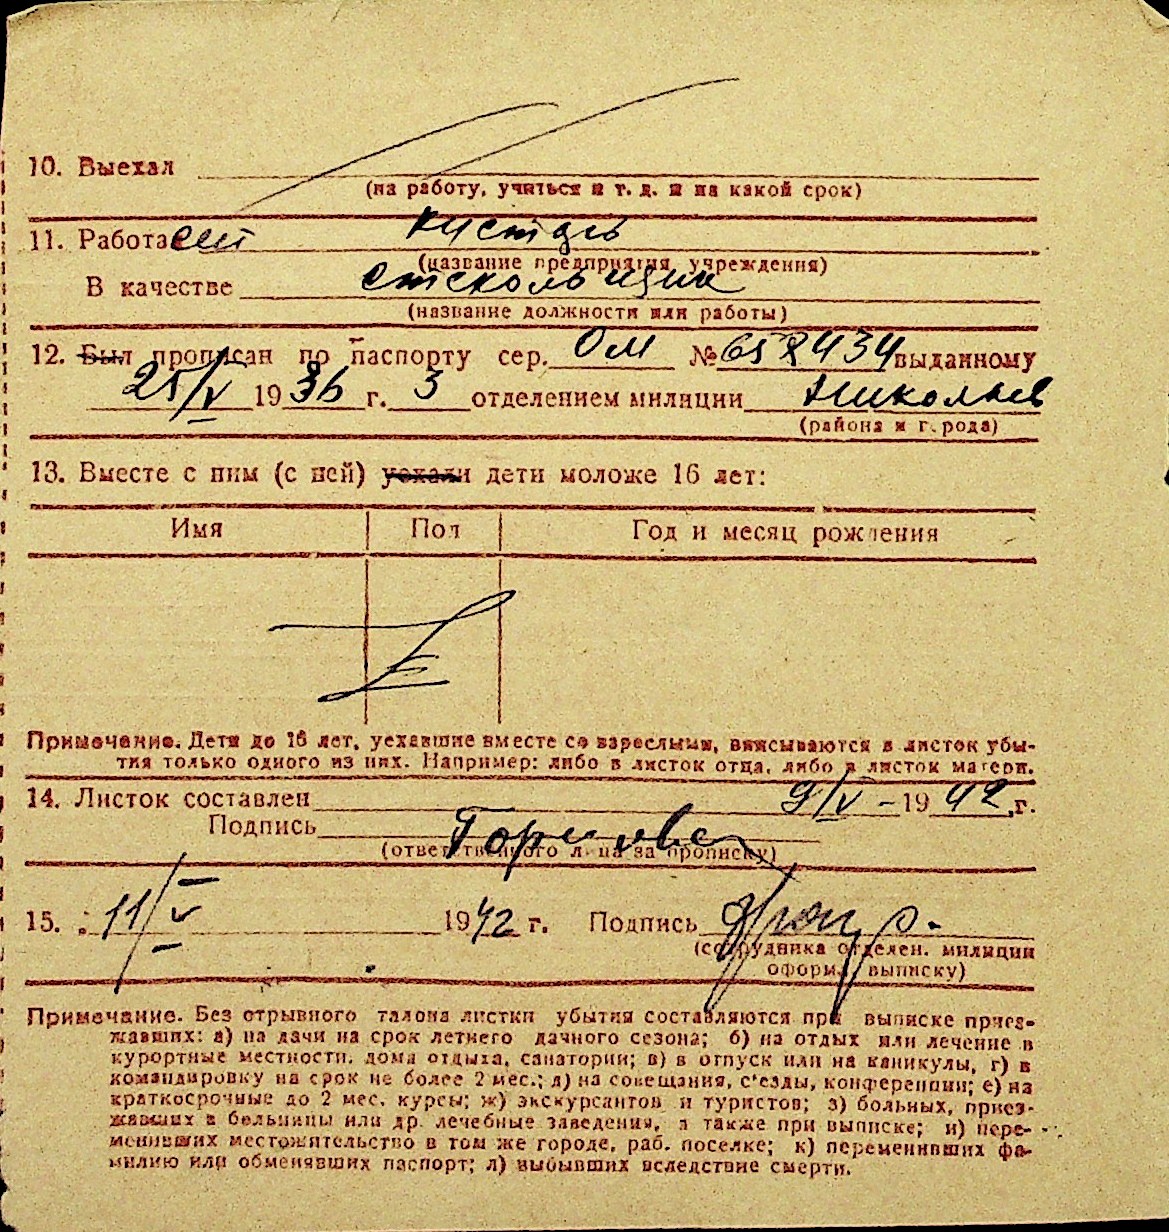 10. Выехал
(на работу, учиться и т. д. и на какой срок)
11. Работает Кустарь
(название предприятия, учреждения)
В качестве стекольщик
(название должности или работы)
12. Был прописан по паспорту сер. ОМ № 658434 выданному
25/V 1936 г. 3 отделением милиции Николаев
(района и города)
13. Вместе с ним (с ней) уехали дети моложе 16 лет:
Имя Пол Год и месяц рождения
Примечание. Дети до 16 лет, уехавшие вместе со взрослыми, вписываются в листок убы-
тия только одного из них. Например: либо в листок отца, либо в листок матери.
14. Листок составлен 9/V - 1942 г.
Подпись
(ответственного лица за прописку)
15. 11/V 1942 г. Подпись
(сотрудника отделен. милиции
оформ. выписку)
Примечание. Без отрывного талона листки убытия составляются при выписке приез-
жавших: а) на дачи на срок летнего дачного сезона; б) на отдых или лечение в
курортные местности, дома отдыха, санатории; в) в отпуск или на каникулы, г) в
командировку на срок не более 2 мес.; д) на совещания, с'езды, конференции; е) на
краткосрочные до 2 мес. курсы; ж) экскурсантов и туристов; з) больных, приез-
жавших в больницы или др. лечебные заведения, а также при выписке; и) пере-
менивших местожительство в том же городе, раб. поселке; к) переменивших фа-
милию или обменявших паспорт; л) выбывших вследствие смерти.